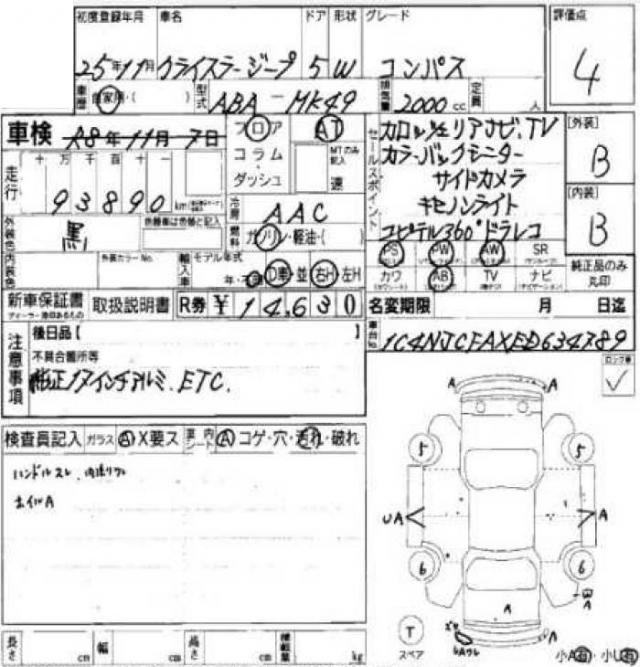 初度登録年月 車名 ドア 形状 グレード 評価点
25年11月 クライスラージープ 5 W コンパス 4
車歴 自家用・( ) 型式 ABA-MK49 排気量 2000cc 定員 人
車検 R8年11月7日 フロア AT セールスポイント カロッツェリアナビ.TV [外装]
コラム・ MTのみ記入 カラーバックモニター B
走行 十 万 千 百 十 一 ダッシュ 速 サイドカメラ
93890 km キセノンライト [内装]
冷房 AAC コムテル360°ドラレコ B
外装色 黒 色替車は色替と記入 燃料 ガソリン・軽油・( )
PS PW AW SR
内装色 外装カラーNo. 輸入車 モデル年式 カワ AB TV ナビ 純正品のみ丸印
年・不明 D車・並 右H 左H
新車保証書 取扱説明書 R券 ¥14,630 名変期限 月 日迄
ディーラー発印あるもの
後日品【 】 車台No. 1C4NJCFAXED634789
注意事項 不具合箇所等 ロック車
純正17インチアルミ.ETC. ✓
検査員記入 ガラス A X要ス 室内シート A コゲ・穴・汚れ・破れ
ハンドルスレ.内張リワレ
ホイルA
A
A
5 5
UA A
6 6
A
A
T
スペア
A
小A 右・小U 右
長さ cm 幅 cm 高さ cm 積載量 kg